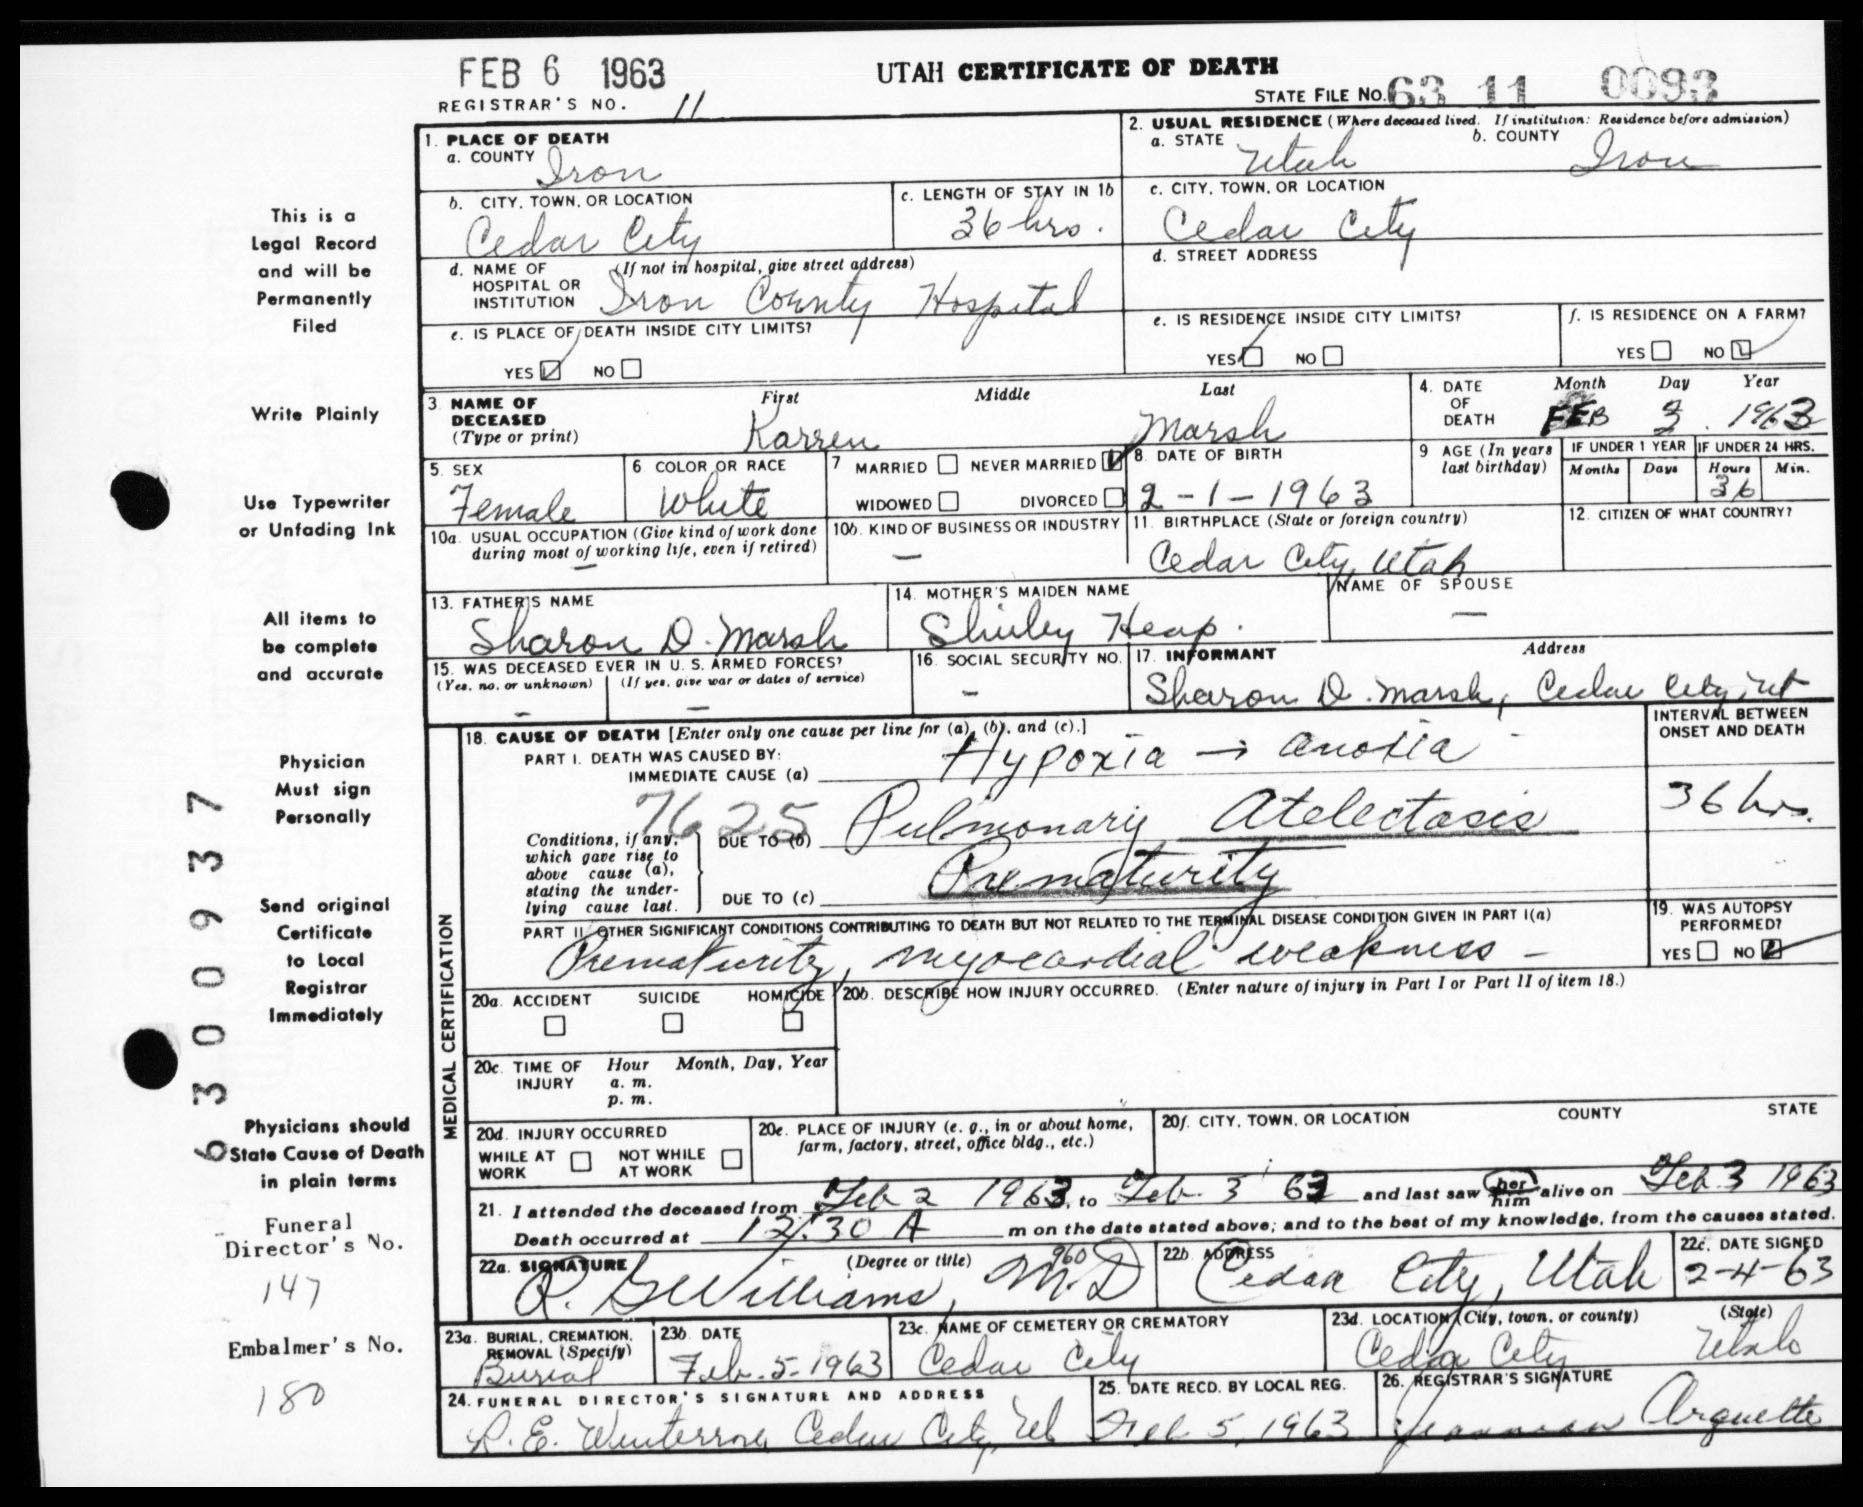 FEB 6 1963
UTAH CERTIFICATE OF DEATH
REGISTRAR'S NO. 11
STATE FILE NO. 63 11 0093
1. PLACE OF DEATH
a. COUNTY Iron
2. USUAL RESIDENCE (Where deceased lived. If institution: Residence before admission)
a. STATE Utah b. COUNTY Iron
b. CITY, TOWN, OR LOCATION Cedar City
c. LENGTH OF STAY IN 1b 36 hrs.
c. CITY, TOWN, OR LOCATION Cedar City
d. NAME OF HOSPITAL OR INSTITUTION (If not in hospital, give street address) Iron County Hospital
d. STREET ADDRESS
e. IS PLACE OF DEATH INSIDE CITY LIMITS?
YES NO
e. IS RESIDENCE INSIDE CITY LIMITS?
YES NO
f. IS RESIDENCE ON A FARM?
YES NO
3. NAME OF DECEASED (Type or print)
First Middle Last
Karren Marsh
4. DATE OF DEATH Month Day Year
FEB 3. 1963
5. SEX Female
6 COLOR OR RACE White
7 MARRIED NEVER MARRIED
WIDOWED DIVORCED
8. DATE OF BIRTH
2-1-1963
9 AGE (In years last birthday)
IF UNDER 1 YEAR Months Days
IF UNDER 24 HRS. Hours Min.
36
10a. USUAL OCCUPATION (Give kind of work done during most of working life, even if retired) —
10b. KIND OF BUSINESS OR INDUSTRY —
11. BIRTHPLACE (State or foreign country)
Cedar City, Utah
12. CITIZEN OF WHAT COUNTRY?
13. FATHER'S NAME
Sharon D. Marsh
14. MOTHER'S MAIDEN NAME
Shirley Heap.
NAME OF SPOUSE —
15. WAS DECEASED EVER IN U. S. ARMED FORCES?
(Yes, no, or unknown) (If yes, give war or dates of service)
— —
16. SOCIAL SECURITY NO. —
17. INFORMANT Address
Sharon D. Marsh, Cedar City, Ut
MEDICAL CERTIFICATION
18. CAUSE OF DEATH [Enter only one cause per line for (a), (b), and (c).]
INTERVAL BETWEEN ONSET AND DEATH
PART I. DEATH WAS CAUSED BY:
IMMEDIATE CAUSE (a) Hypoxia → anoxia
7625
Conditions, if any, which gave rise to above cause (a), stating the underlying cause last.
DUE TO (b) Pulmonary Atelectasis
36 hrs.
DUE TO (c) Prematurity
PART II. OTHER SIGNIFICANT CONDITIONS CONTRIBUTING TO DEATH BUT NOT RELATED TO THE TERMINAL DISEASE CONDITION GIVEN IN PART I(a)
Prematurity, myocardial weakness —
19. WAS AUTOPSY PERFORMED?
YES NO
20a. ACCIDENT SUICIDE HOMICIDE
20b. DESCRIBE HOW INJURY OCCURRED. (Enter nature of injury in Part I or Part II of item 18.)
20c. TIME OF INJURY Hour Month, Day, Year
a. m.
p. m.
20d. INJURY OCCURRED
WHILE AT WORK NOT WHILE AT WORK
20e. PLACE OF INJURY (e. g., in or about home, farm, factory, street, office bldg., etc.)
20f. CITY, TOWN, OR LOCATION COUNTY STATE
21. I attended the deceased from Feb 2 1963, to Feb. 3 63 and last saw her him alive on Feb 3 1963
Death occurred at 12:30 A m on the date stated above; and to the best of my knowledge, from the causes stated.
22a. SIGNATURE (Degree or title) 960
R. G Williams, M.D
22b. ADDRESS
Cedar City, Utah
22c. DATE SIGNED
2-4-63
23a. BURIAL, CREMATION, REMOVAL (Specify)
Burial
23b. DATE
Feb. 5. 1963
23c. NAME OF CEMETERY OR CREMATORY
Cedar City
23d. LOCATION (City, town, or county) (State)
Cedar City Utah
24. FUNERAL DIRECTOR'S SIGNATURE AND ADDRESS
Cedar City, Ut
25. DATE RECD. BY LOCAL REG.
Feb 5, 1963
26. REGISTRAR'S SIGNATURE
Arguette
This is a
Legal Record
and will be
Permanently
Filed
Write Plainly
Use Typewriter
or Unfading Ink
All items to
be complete
and accurate
Physician
Must sign
Personally
Send original
Certificate
to Local
Registrar
Immediately
Physicians should
State Cause of Death
in plain terms
Funeral
Director's No.
147
Embalmer's No.
180
6300937